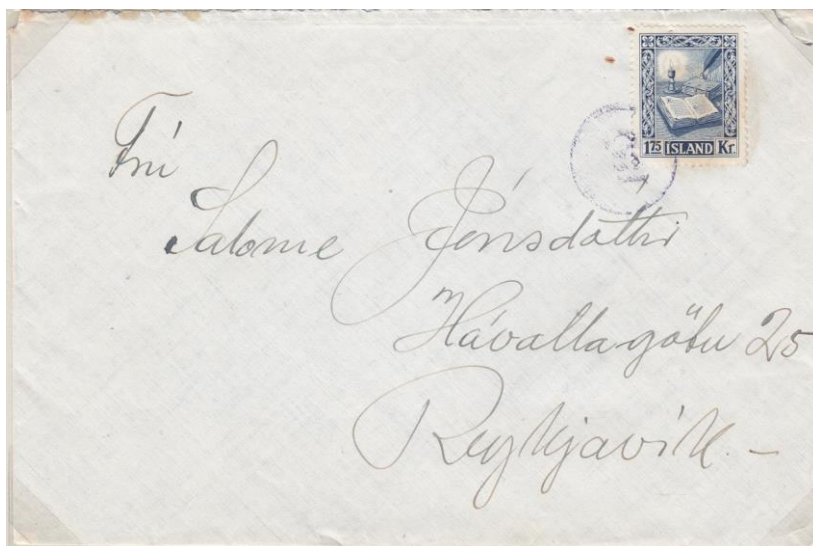 1.75 ÍSLAND Kr.
Frú
Salome Jónsdóttir
Hávallagötu 25
Reykjavík. –